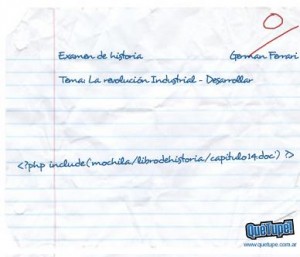 Examen de historia German Ferrari
Tema: La revolución Industrial - Desarrollar
<?php include('mochila/librodehistoria/capitulo14.doc') ?>
QuéTupe!
www.quetupe.com.ar